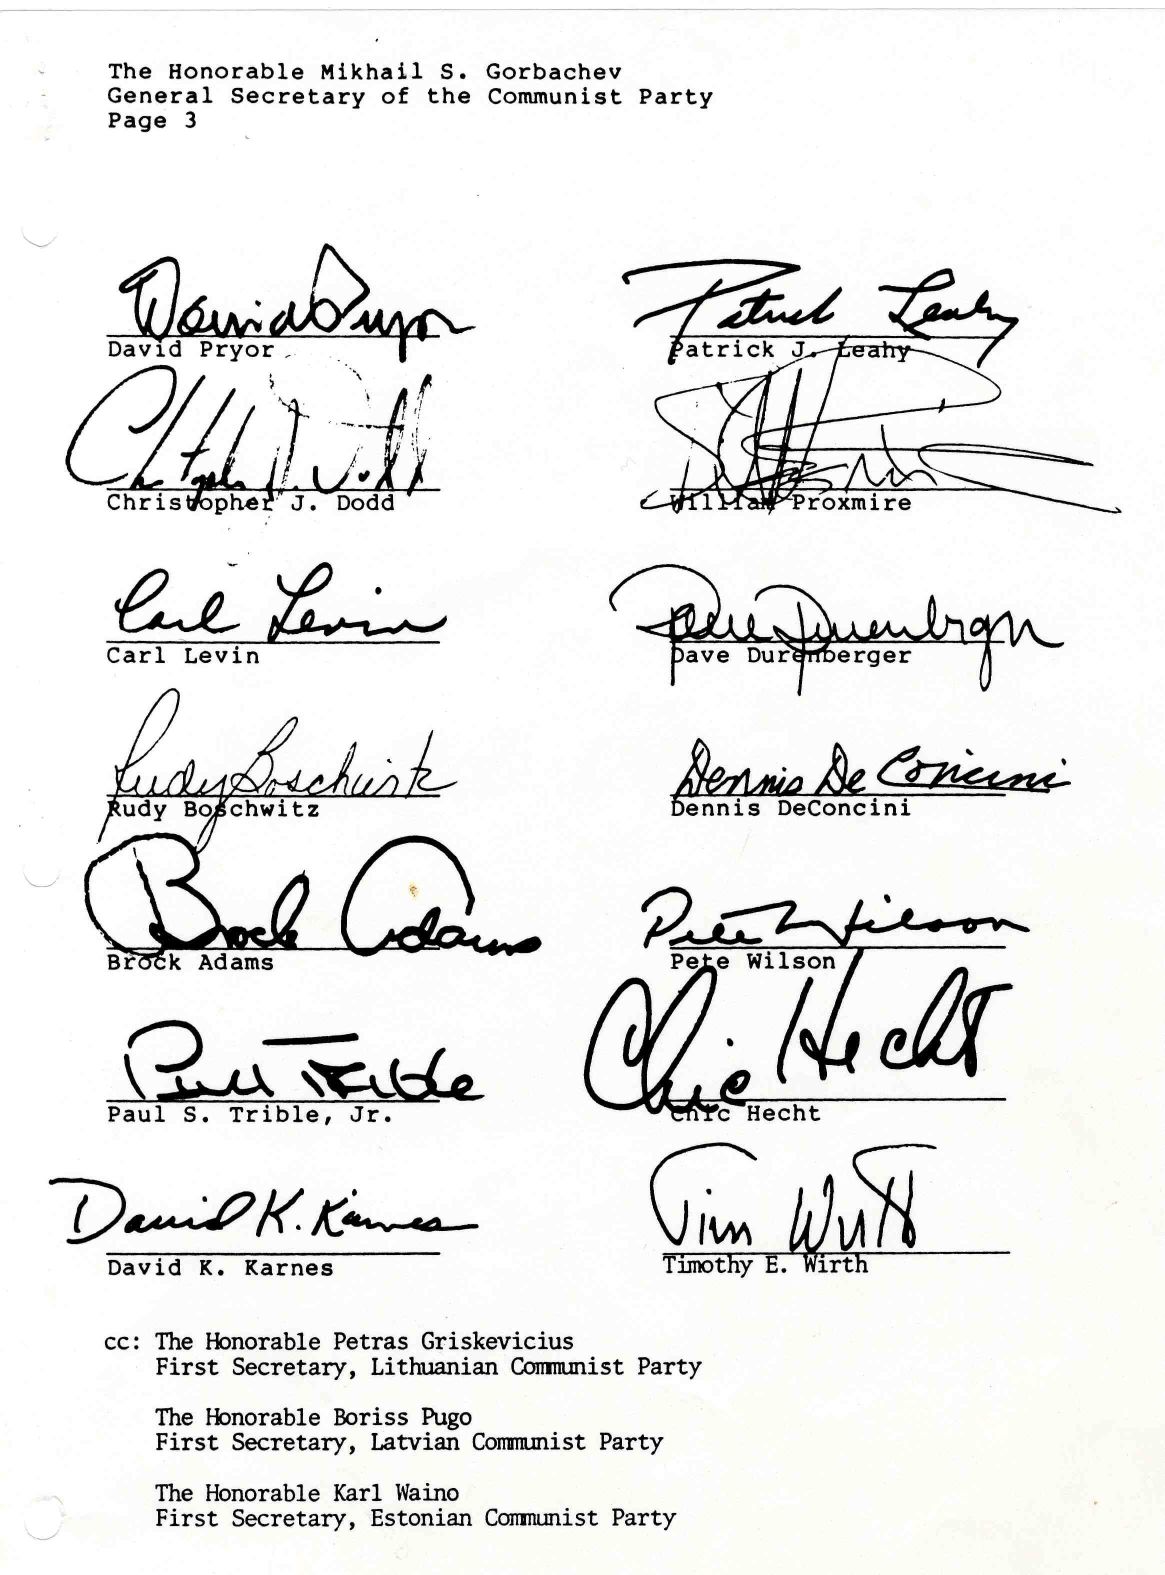 The Honorable Mikhail S. Gorbachev
General Secretary of the Communist Party
Page 3
David Pryor
Patrick Leahy
David Pryor
Patrick J. Leahy
Christopher J. Dodd
Christopher J. Dodd
William Proxmire
Carl Levin
Dave Durenberger
Carl Levin
Dave Durenberger
Rudy Boschwitz
Dennis DeConcini
Rudy Boschwitz
Dennis DeConcini
Brock Adams
Pete Wilson
Brock Adams
Pete Wilson
Paul Trible
Chic Hecht
Paul S. Trible, Jr.
Chic Hecht
David K. Karnes
Tim Wirth
David K. Karnes
Timothy E. Wirth
cc: The Honorable Petras Griskevicius
First Secretary, Lithuanian Communist Party
The Honorable Boriss Pugo
First Secretary, Latvian Communist Party
The Honorable Karl Waino
First Secretary, Estonian Communist Party